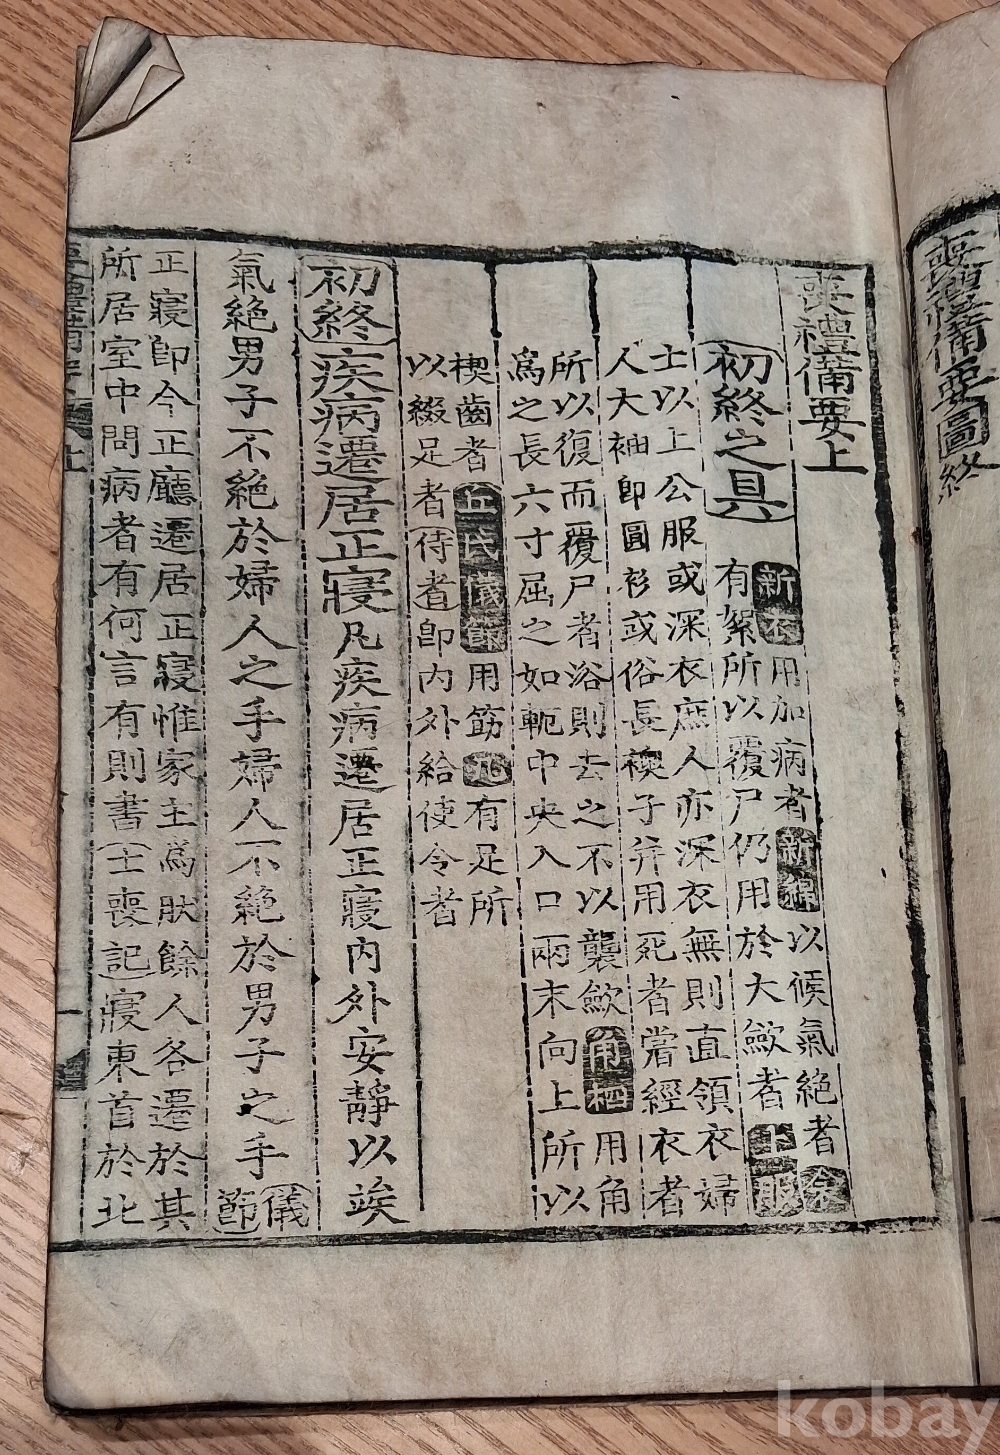 喪禮備要圖終
喪禮備要上
初終之具
新衣用加病者新緜以候氣絶者衾
有絮所以覆尸仍用於大斂者上服
士以上公服或深衣庶人亦深衣無則直領衣婦
人大袖卽圓衫或俗長襖子幷用死者嘗經衣者
所以復而覆尸者浴則去之不以襲斂角柶用角
爲之長六寸屈之如軛中央入口兩末向上所以
楔齒者丘氏儀節用筯几有足所
以綴足者侍者卽內外給使令者
初終疾病遷居正寢凡疾病遷居正寢內外安靜以竢
氣絶男子不絶於婦人之手婦人不絶於男子之手儀
節
正寢卽今正廳遷居正寢惟家主爲肰餘人各遷於其
所居室中問病者有何言有則書士喪記寢東首於北
上
一
kobay